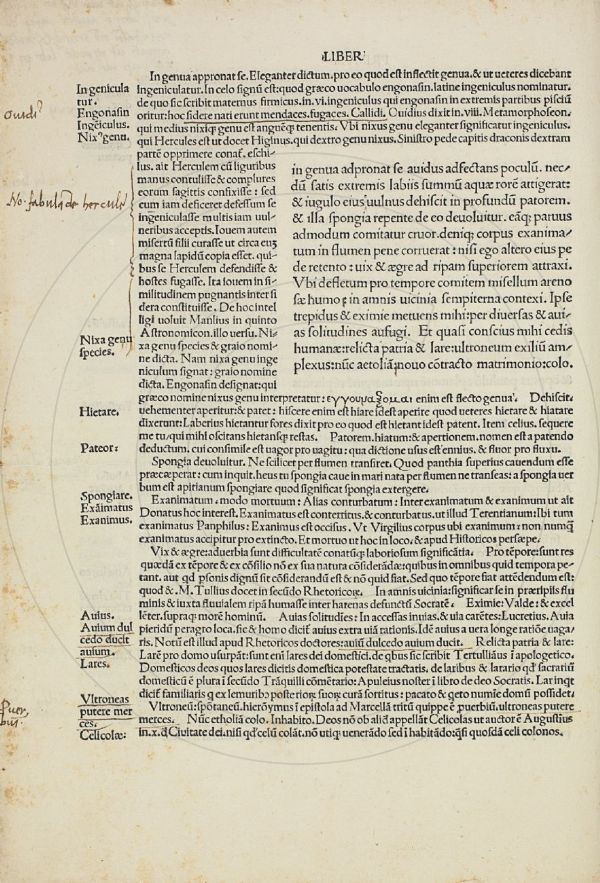 LIBER
In genua appronat se. Eleganter dictum, pro eo quod est inflectit genua, & ut ueteres dicebant
Ingeniculatur. In celo signū est: quod græco uocabulo engonasin, latine ingeniculus nominatur,
de quo sic scribit maternus firmicus, in .vi. ingeniculus qui engonasin in extremis partibus pisciū
oritur: hoc sidere nati erunt mendaces, fugaces. Callidi. Ouidius dixit in .viii. Metamorphoseon,
qui medius nixiq; genu est angueq; tenentis. Vbi nixus genu eleganter significatur ingeniculus,
qui Hercules est ut docet Higinus, qui dextro genu nixus. Sinistro pede capitis draconis dextram
partē opprimere conat̄, eschi-
lus. ait Herculem cū liguribus
manus contulisse & complures
eorum sagittis confixisse: sed
cum iam deficeret defessum se
ingeniculasse multis iam uul-
neribus acceptis. Iouem autem
misertū filii curasse ut circa eum
magna lapidū copia esset. qui-
bus se Herculem defendisse &
hostes fugasse. Ita Iouem in si-
militudinem pugnantis inter si
dera constituisse. De hoc intel
ligi uoluit Manlius in quinto
Astronomicon. illo uersu. Ni-
xa genu species & graio nomi-
ne dicta. Nam nixa genu inge
niculum signat: graio nomine
dicta. Engonasin designat: qui
in genua adpronat se auidus adfectans poculū. nec-
dū satis extremis labiis summū aquæ rorē attigerat:
& iugulo eius uulnus dehiscit in profundū patorem.
& illa spongia repente de eo deuoluitur. eāq; paruus
admodum comitatur cruor. deniq; corpus exanima-
tum in flumen pene corruerat: nisi ego altero eius pe
de retento: uix & ægre ad ripam superiorem attraxi.
Vbi defletum pro tempore comitem misellum areno
sæ humo: in amnis uicinia sempiterna contexi. Ipse
trepidus & eximie metuens mihi: per diuersas & aui-
as solitudines aufugi. Et quasi conscius mihi cedis
humanæ: relicta patria & lare: ultroneum exiliū am-
plexus: nūc aetoliā: nouo cōtracto matrimonio: colo.
græco nomine nixus genu interpretatur: enim est flecto genua. Dehiscit:
uehementer aperitur: & patet: hiscere enim est hiare id est aperire quod ueteres hietare & hiatate
dixerunt: Laberius hietantur fores dixit pro eo quod est hietant id est patent. Item celius. sequere
me tu, qui mihi oscitans hietansq; restas. Patorem. hiatum: & apertionem. nomen est a patendo
deductum, cui consimile est uagor pro uagitu: qua dictione usus est ennius, & fluor pro fluxu.
Spongia deuoluitur. Ne scilicet per flumen transiret. Quod panthia superius cauendum esse
præceperat: cum inquit. heus tu spongia caue in mari nata per flumen ne transeas: a spongia uer
bum est apitianum spongiare quod significat spongia extergere.
Exanimatum. modo mortuum: Alias conturbatum: Inter exanimatum & exanimum ut ait
Donatus hoc interest. Exanimatus est conterritus, & conturbatus. ut illud Terentianum: Ibi tum
exanimatus Pamphilus: Exanimus est occisus. Vt Virgilius corpus ubi exanimum: non nunq̄
exanimatus accipitur pro extincto. Et mortuo ut hoc in loco, & apud Historicos persæpe.
Vix & ægre: aduerbia sunt difficultatē conatūq; laboriosum significātia. Pro tēpore: sunt res
quædā ex tēpore & ex cōsilio nō ex sua natura cōsideradæ: quibus in omnibus quid tempora pe-
tant. aut qd psonis dignū sit cōsiderandū est & nō quid fiat. Sed quo tēpore fiat attēdendum est:
quod &. M. Tullius docet in secūdo Rhetoricoɤ. In amnis uicinia: significat se in præripiis flu
minis & iuxta fluuialem ripā humasse inter harenas defunctū Socratē. Eximie: Valde: & excel
lēter. supraq; morē hominū. Auias solitudīes: In accessas inuias, & uia carētes: Lucretius. Auia
pieridū peragro loca. sic & homo dicit̄ auius extra uiā rationis. Idē auius a uera longe ratiōe uaga-
ris. Notū est illud apud Rhetoricos doctores: auiū dulcedo auium ducit. Relicta patria & lare:
Larē pro domo usurpāt: sunt eni lares dei domestici. de qbus sic scribit Tertulliāus i apologetico.
Domesticos deos quos lares dicitis domestica potestate tractatis. de laribus & larario qd sacrariū
domesticū ē plura i secūdo Trāquilli cōmētario: Apuleius noster i libro de deo Socratis. Lar inqt
dicit̄ familiaris q ex lemuribɔ posterioɤ suoɤ curā sortitus: pacato & geto numīe domū possidet.
Vltroneū: spōtaneū. hieronymus ī epistola ad Marcellā tritū quippe ē puerbiū. ultroneas putere
merces. Nūc etholiā colo. Inhabito. Deos nō ob aliđ appellāt Celicolas ut auctor ē Augustius
in .x. đ Ciuitate dei. nisi qđ celū colāt. nō utiq; uenerādo sed ī habitādo: qsi quosdā celi colonos.
In genicula
tur.
Engonasin
Ingēiculus.
Nixꝰ genu.
Nixa genu
species.
Hietare.
Pateor:
Spongiare.
Exāimatus
Exanimus.
Auius.
Auium dul
cedo ducit
auium.
Lares.
Vltroneas
putere mer
ces.
Celicolæ:
Ouidiꝰ
No. fabula de hercule
Puer
biū.